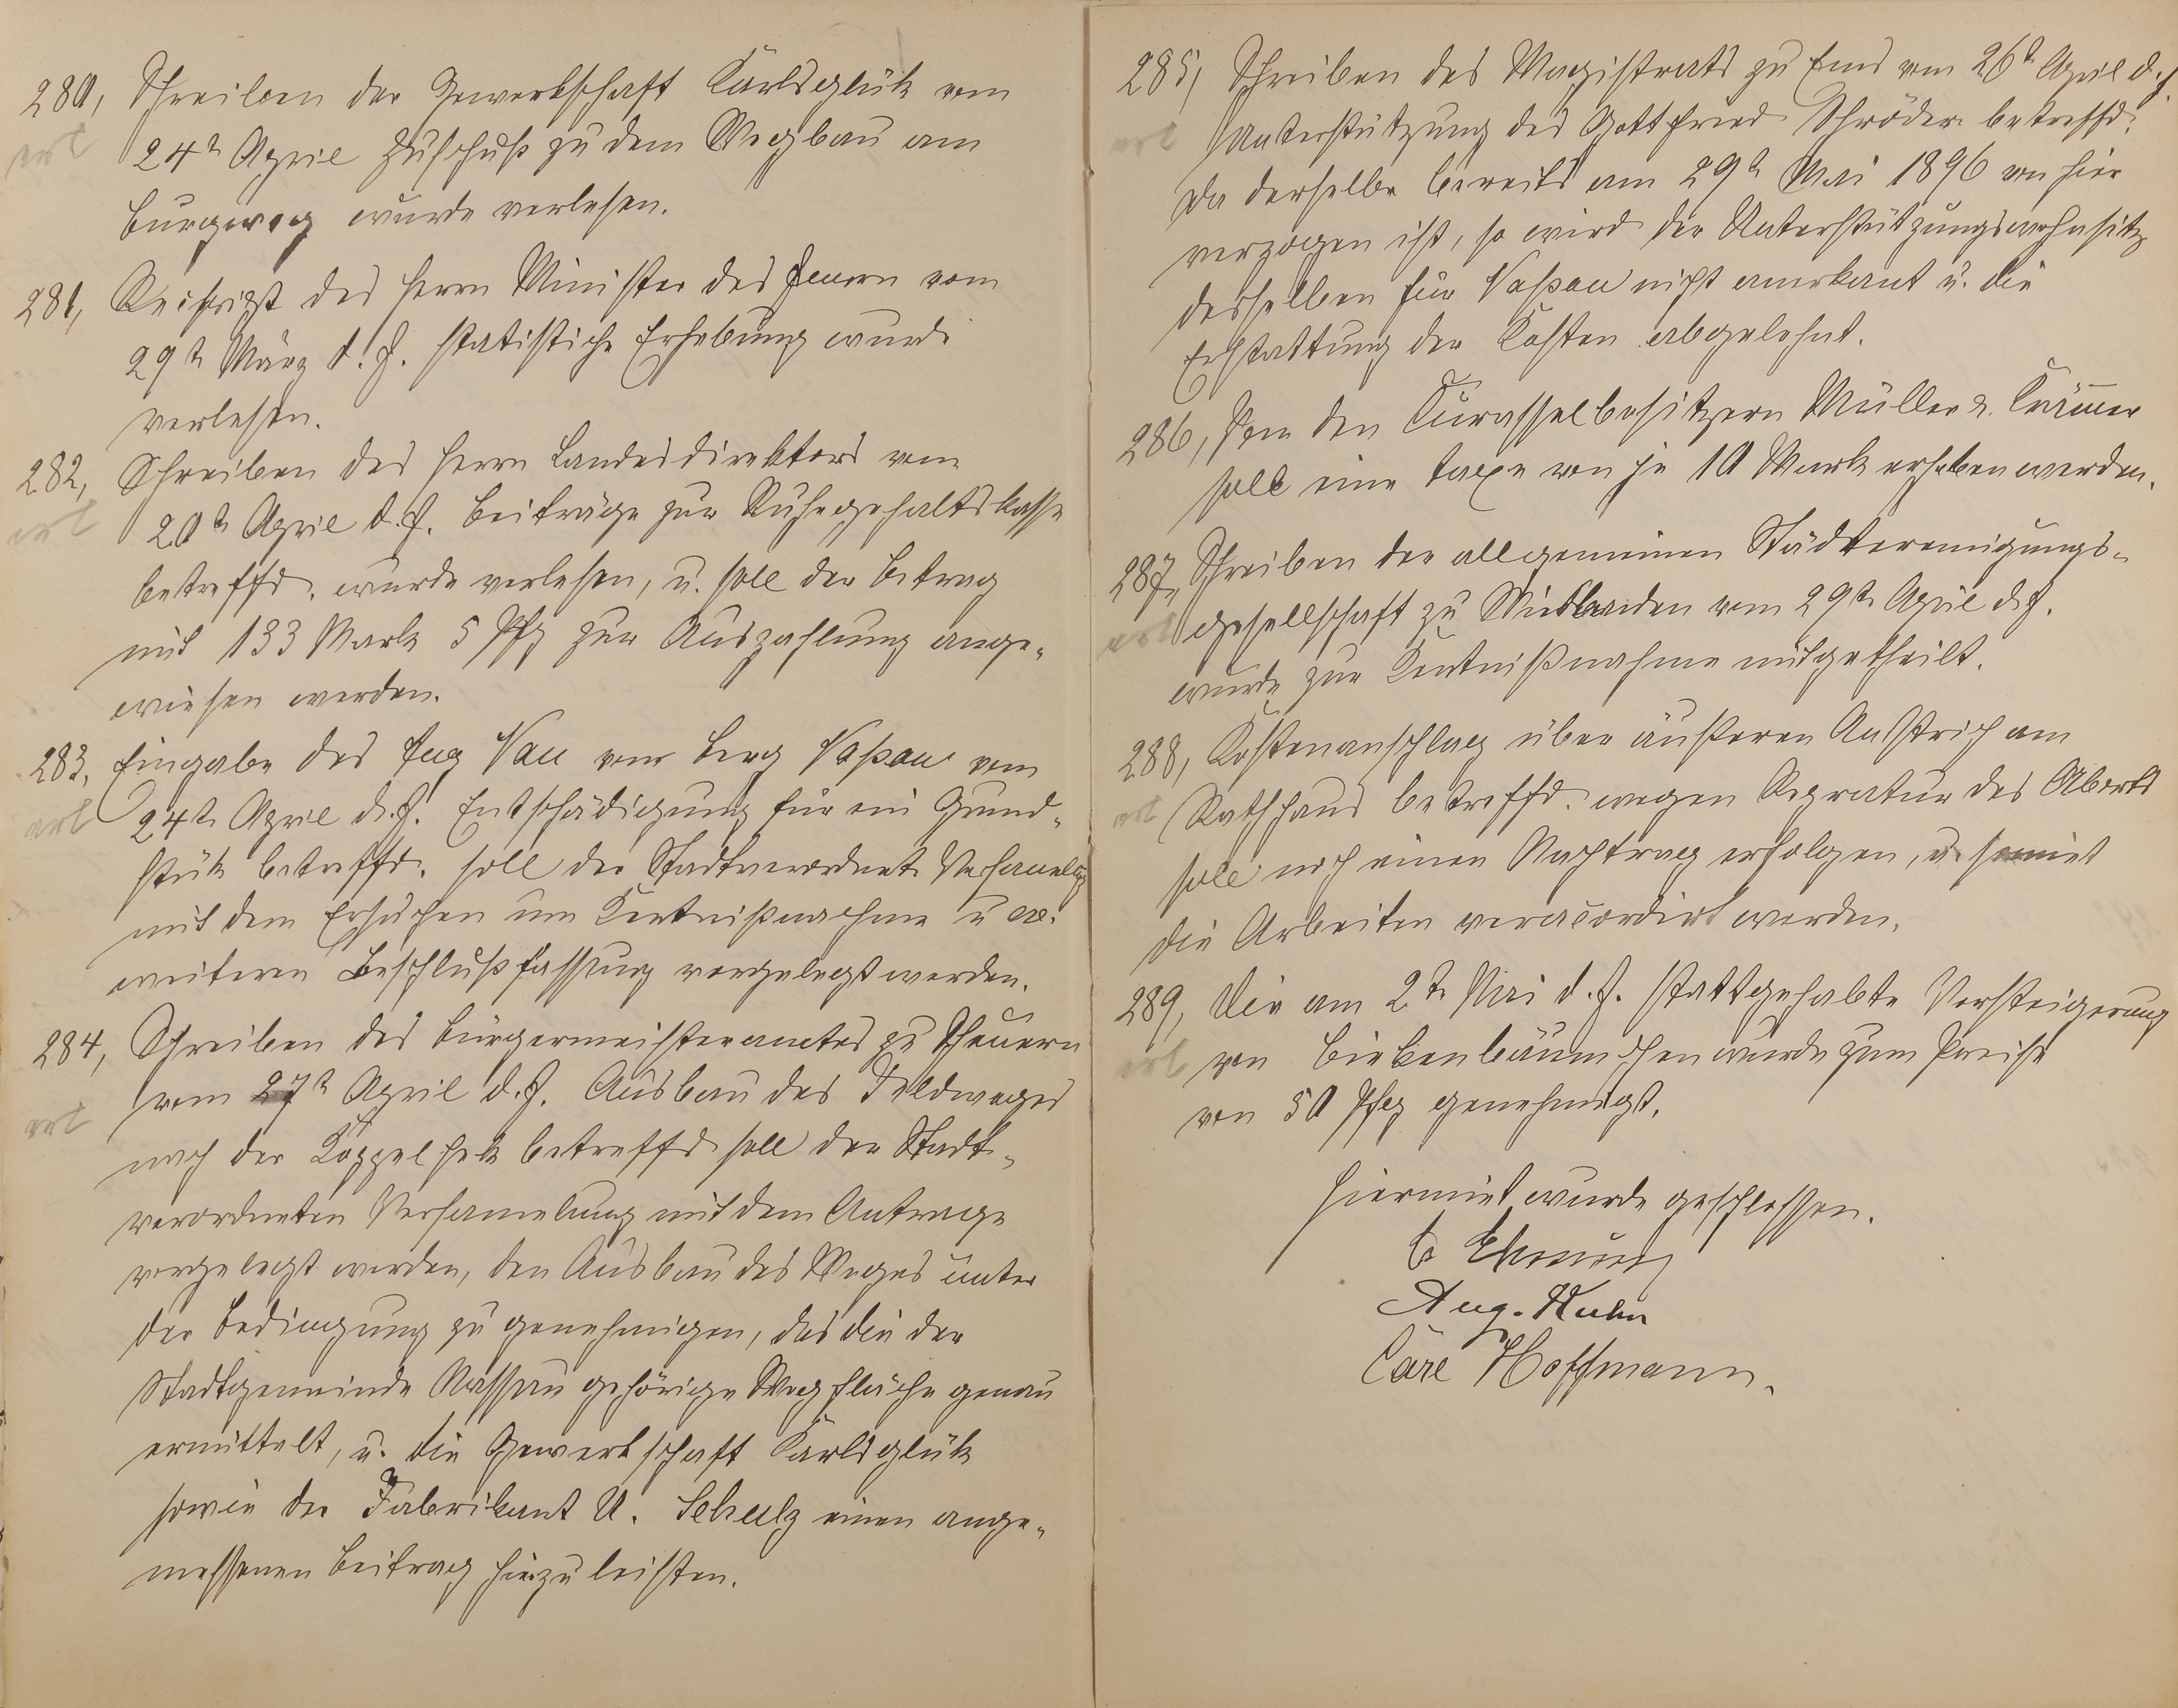 280, Schreiben der Gewerkschaft Karlsglük vom
erl 24t April Zuschuß zu dem Wegbau am
Burgweg wurde verlesen.
281, Rescript des Herrn Minister des Innern vom
29t März d. J. statistiche Erhebung wurde
verlesen.
282, Schreiben des Herrn Landesdirektors vom
erl 20t April d. J. Beiträge zur Ruhegehaltskasse
betreffd. wurde verlesen, u. soll der Betrag
mit 133 Mark 5 Pfg zur Auszahlung ange-
wiesen werden.
283, Eingabe des Aug Nau von Berg Naßau vom
erl 24t April d. J. Entschädigung für ein Grund-
stük betreffd. soll der Stadtverordnete Versamlg
mit dem Ersuchen um Kentnißnahme u
weiteren Beschlußfassung vorgelegt werden.
284, Schreiben des Bürgermeisteramtes zu Scheuern
erl vom 27t April d. J. Ausbau des Feldweges
nach der Koppelhek betreffd soll der Stadt-
verordneten Versamelung mit dem Antrage
vorgelegt werden, den Ausbau des Weges unter
der Bedingung zu genehmigen, das die der
Stadtgemeinde Nassau gehörige Wegfläche genau
ermittelt, u. die Gewerkschaft Karlsglük
sowie der Fabrikant U. Schulz einen ange-
messenen Beitrag hinzu leisten.
285, Schreiben des Magistrats zu Ems vom 26t April d. J.
erl Unterstützung des Gottfried Schröder betreffd.
Da derselbe bereits am 29t Mai 1896 von hier
verzogen ist, so wird der Unterstützungswohnsitz
desselben für Naßau nicht anerkant u. die
Erstattung der Kosten abgelehnt.
286, Von den Besitzern Müller & Krämer
soll eine Taxe von je 10 Mark erhoben werden.
287, Schreiben der allgemeinen Städtereinigungs-
erl gesellschaft zu Wiesbaden vom 29t April d. J.
wurde zur Kentnißnahme mitgetheilt.
288, Kostenanschlag über äußeren Anstrich am
erl Rathhaus betreffd. wegen Repratur des Aborts
soll noch einen Nachtrag erfolgen, u. somit
die Arbeiten veracordirt werden.
289, Die am 2t Mai d. J. stattgehabte Versteigerung
erl von Birkenbäumchen wurde zum Preise
von 50 Pfg genehmigt.
Hiermit wurde geschlossen.
Aug. Kuhn
Carl Hoffmann.